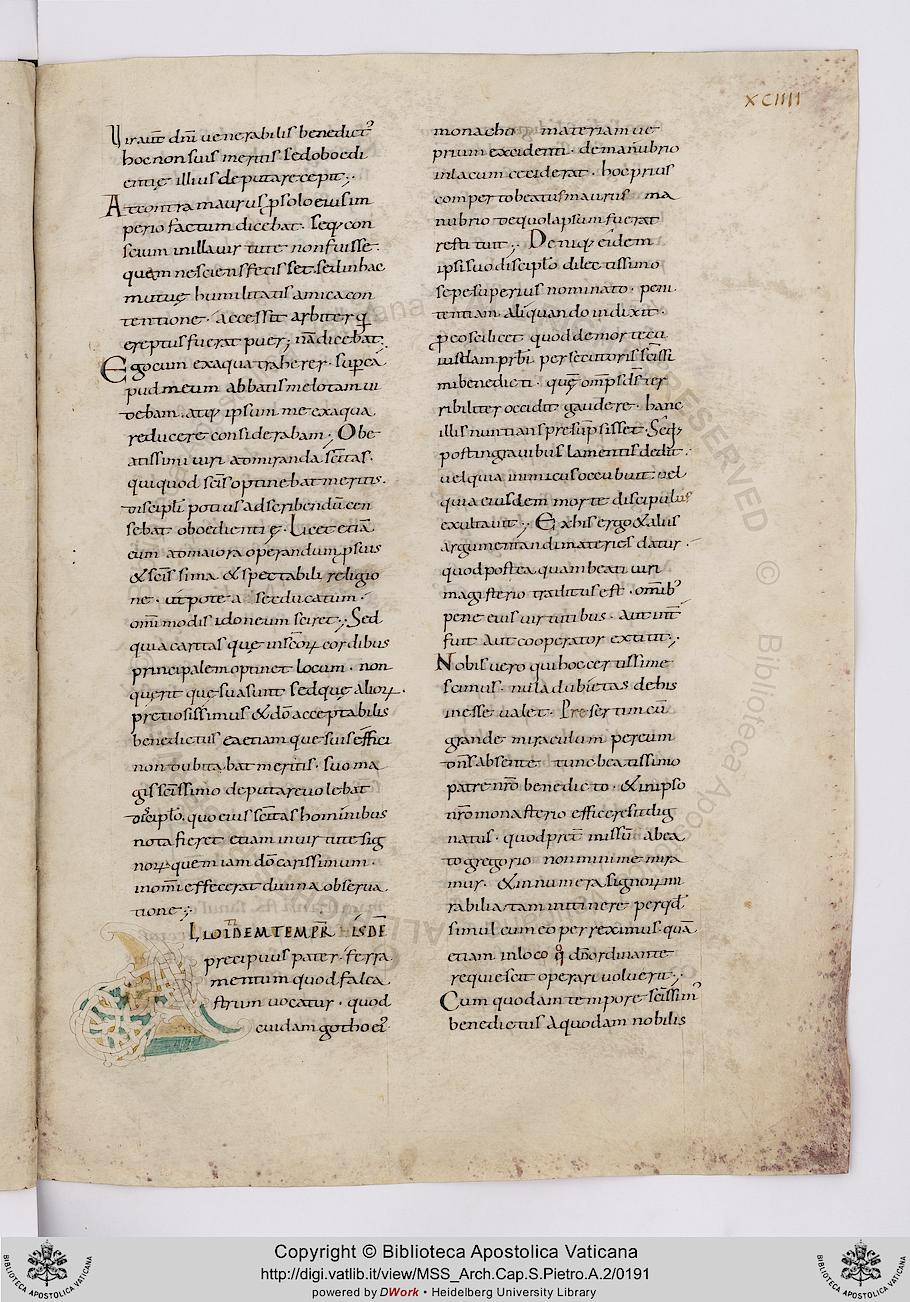 XCIIII
Vir aut̄ dn̄i uenerabilis benedict᾽
hoc non suis meritis sed oboedi
entię illius deputare cepit;
At contra maurus ꝓ solo eius im
perio factum dicebat. Seq; con
scium in illa uirtute non fuisse.
quem nesciens fecisset. sed in hac
mutuę humilitatis amica con
tentione. accessit arbiter q̄
ereptus fuerat puer; nā dicebat.
Ego cum ex aqua traherer. sup̄ ca
pud meum abbatis melotam ui
debam. atq; ipsum me ex aqua
reducere considerabam; O be
atissimi uiri admiranda sc̄itas.
qui quod sc̄is optinebat meritis.
discipl̄i potius adscribendū cen
sebat oboedientię. Licet etiā
eum ad maiora operandum ꝓ suis
& sc̄issima & spectabili religio
ne. ut pote a se educatum.
om̄imodis idoneum sciret; Sed
quia caritas que in sc̄oꝝ cordibus
principalem optinet locum. non
querit que sua sunt sed que alioꝝ.
pretiosissimus & dō acceptabilis
benedictus ea etiam que suis effici
non dubitabat meritis. suo ma
gis sc̄issimo deputare uolebat
discipl̄o. quo eius sc̄itas hominibus
nota fieret etiam in uirtute sig
noꝝ quem iam dō carissimum.
in om̄i effecerat diuina obserua
tione;
ALIO IDEM TEMPR̄ ISDĒ
precipuus pater. ferra
mentum quod falca
strum uocatur. quod
cuidam gotho ei᾽
monacho materiam ue
prium excidenti. de manubrio
in lacum ceciderat. hoc prius
comperto beatus maurus ma
nubrio de quo lapsum fuerat
restituit; Deniq; eidem
ipsi suo discipl̄o dilectissimo
sepe superius nominato. peni
tentiam aliquando indixit.
ꝓ eo scilicet quod de morte cu
iusdam prb̄i persecutoris sc̄issi
mi benedicti. quę om̄ps ds̄ ter
ribiliter occidit gaudere. hanc
illis nuntians presūpsisset. Seq;
post in grauibus lamentis dedit.
uel quia inimicus occubuit. uel
quia eiusdem morte discipulus
exultauit; Ex his ergo & aliis
argumentandi materies datur.
quod postea quam beati uiri
magisterio traditus est. om̄ib᾽
pene eius uirtutibus. aut int̄
fuit aut cooperator extitit;
Nobis uero qui hoc certissime
scimus. nulla dubietas de his
inesse ualet. Presertim cū
grande miraculum per eum
dn̄s absente tunc beatissimo
patre nr̄o benedicto. & in ipso
nr̄o monasterio efficere sit dig
natus. quod pret̄ missū abea
to gregorio non minime mira
mur. & innumera signoꝝ mi
rabilia tam in itinere per qđ
simul cum eo perreximus. quā
etiam in loco q̊ dn̄o ordinante
requiescit operari uoluerit;
Cum quodam tempore sc̄issim᾽
benedictus a quodam nobilis
DIGITALLY PRESERVED © Biblioteca Apostolica Vaticana
BIBLIOTECA APOSTOLICA VATICANA
Copyright © Biblioteca Apostolica Vaticana
http://digi.vatlib.it/view/MSS_Arch.Cap.S.Pietro.A.2/0191
powered by DWork • Heidelberg University Library
BIBLIOTECA APOSTOLICA VATICANA